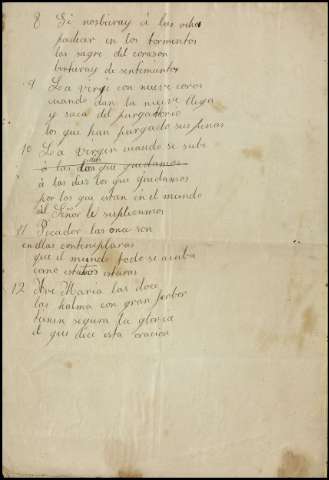 8 Si nosbieray á las ocho
padicer en los tormentos
las sagre del corason
brotaray de sentimientos
9 La virgi con nueve coros
cuando dan la nueve llega
y saca del purgatorio
los que han purgado sus penas
10 La virgen cuando se sube
á las dies que quedamos
á las dies los que quedamos
por los que estan en el mundo
al Señor le suplicamos
11 Pecador las once son
en ellas contemplaras
que el mundo todo se acaba
como estabas estaras
12 Ave Maria las doce
las halma con gran ferbor
tienen segura la gloria
el que dice esta oracion